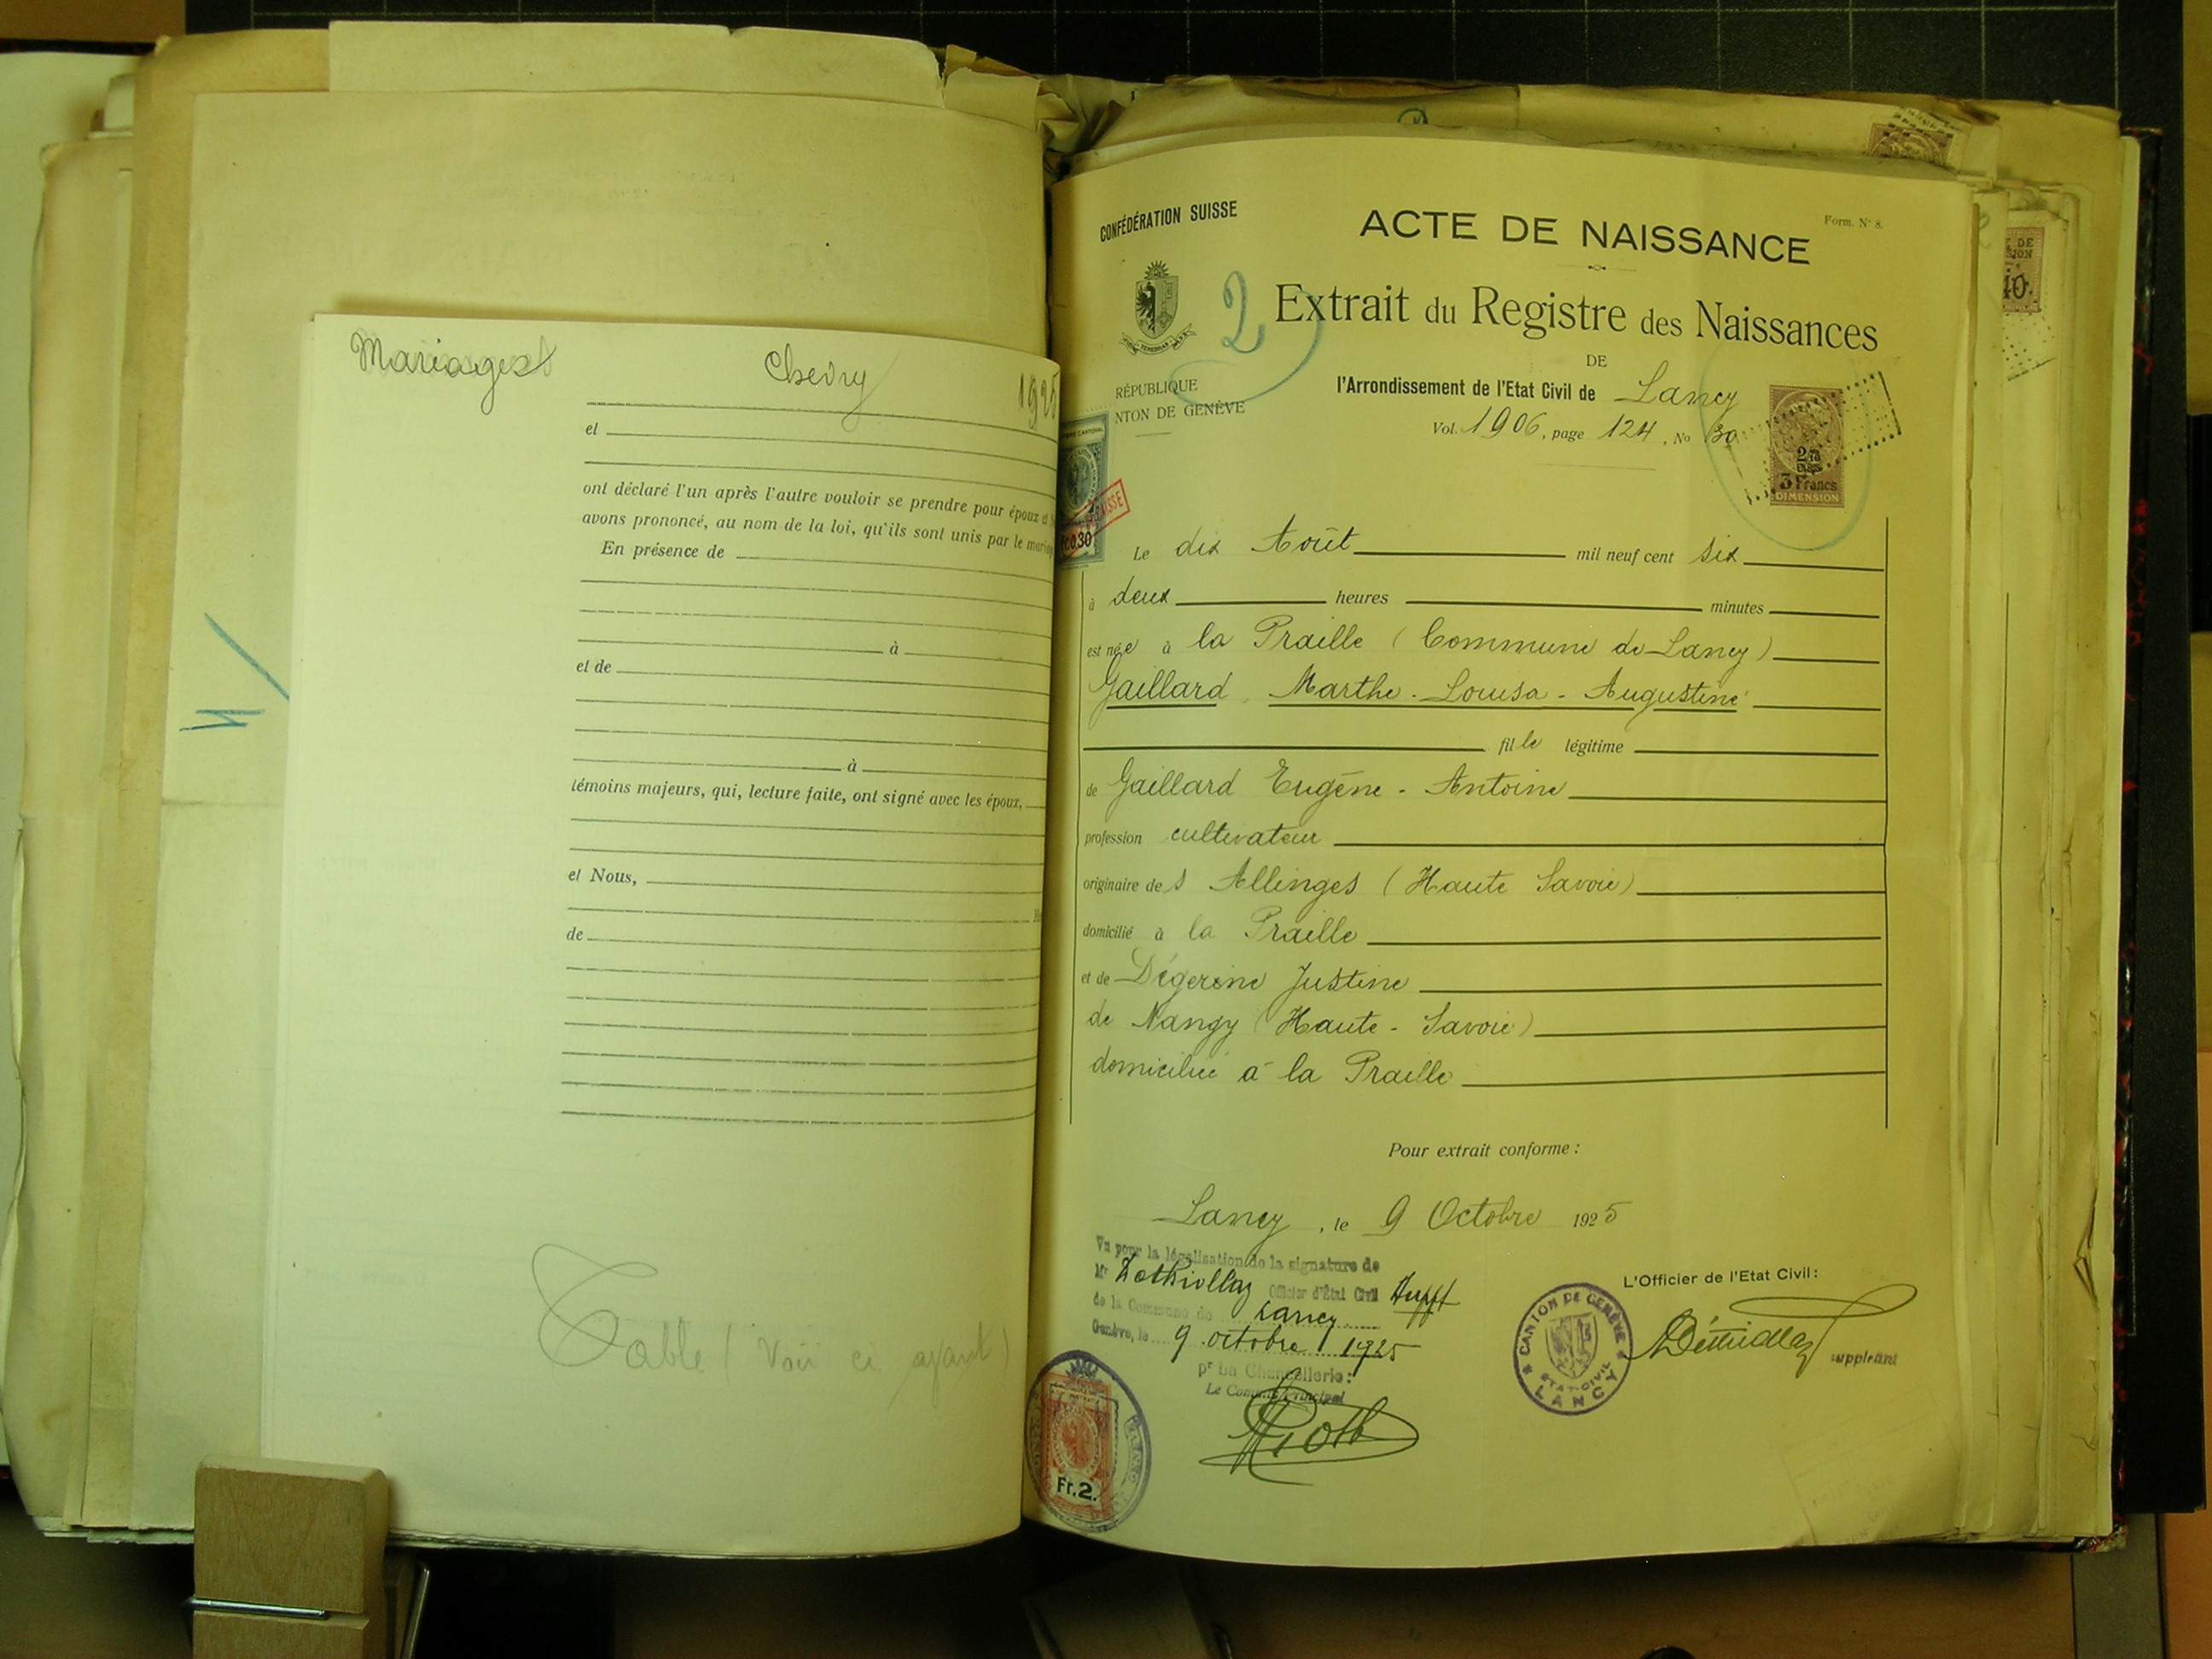 Mariages Chevry 1925
et
ont déclaré l'un après l'autre vouloir se prendre pour époux et
avons prononcé, au nom de la loi, qu'ils sont unis par le
En présence de
à
et de
à
témoins majeurs, qui, lecture faite, ont signé avec les époux,
et Nous,
de
Table (Voir ci avant)
CONFÉDÉRATION SUISSE
ACTE DE NAISSANCE
Form. N° 8.
2
Extrait du Registre des Naissances
DE
RÉPUBLIQUE
NTON DE GENÈVE
l'Arrondissement de l'Etat Civil de Lancy
Vol. 1906, page 124, No 30
3 Francs
DIMENSION
0.30
Le dix Août mil neuf cent six
à deux heures minutes
est née à la Praille (Commune de Lancy)
Gaillard Marthe-Louisa-Augustine
fille légitime
de Gaillard Eugène-Antoine
profession cultivateur
originaire des Allinges (Haute Savoie)
domicilié à la Praille
et de Dégerine Justine
de Nangy (Haute-Savoie)
domiciliée à la Praille
Pour extrait conforme :
Lancy, le 9 Octobre 1925
Vu pour la légalisation de la signature de
Mr Officier d'État Civil
de la Commune de Lancy
Genève, le 9 octobre 1925
pr La Chancellerie :
Le Commis Principal
L'Officier de l'Etat Civil :
suppléant
CANTON DE GENÈVE
ETAT-CIVIL
LANCY
Fr. 2.
DE
40